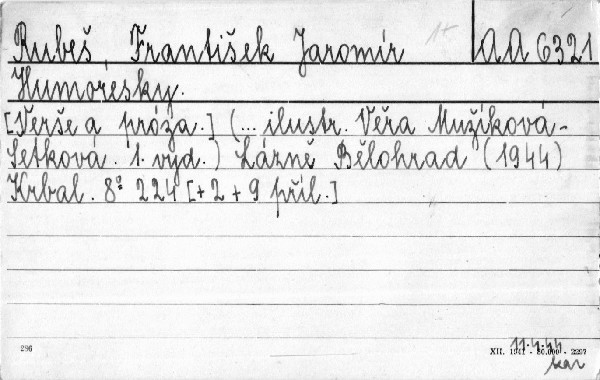 Rubeš, František Jaromír AA 6321
Humoresky.
[Verše a próza.] (... ilustr. Věra Mužíková-
Setková. 1. vyd.) Lázně Bělohrad (1944)
Krbal. 8° 224 [+ 2 + 9 příl.]
286 XII. 1941 - 80.000 - 2297